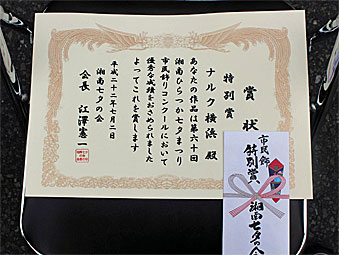 賞状
特別賞
ナルク横浜 殿
あなたの作品は第六十回
湘南ひらつか七夕まつり
市民飾りコンクールにおいて
優秀な成績をおさめられました
よってこれを賞します
平成二十二年七月二日
湘南七夕の会
会長 江澤憲一
市民飾
特別賞
湘南七夕の会